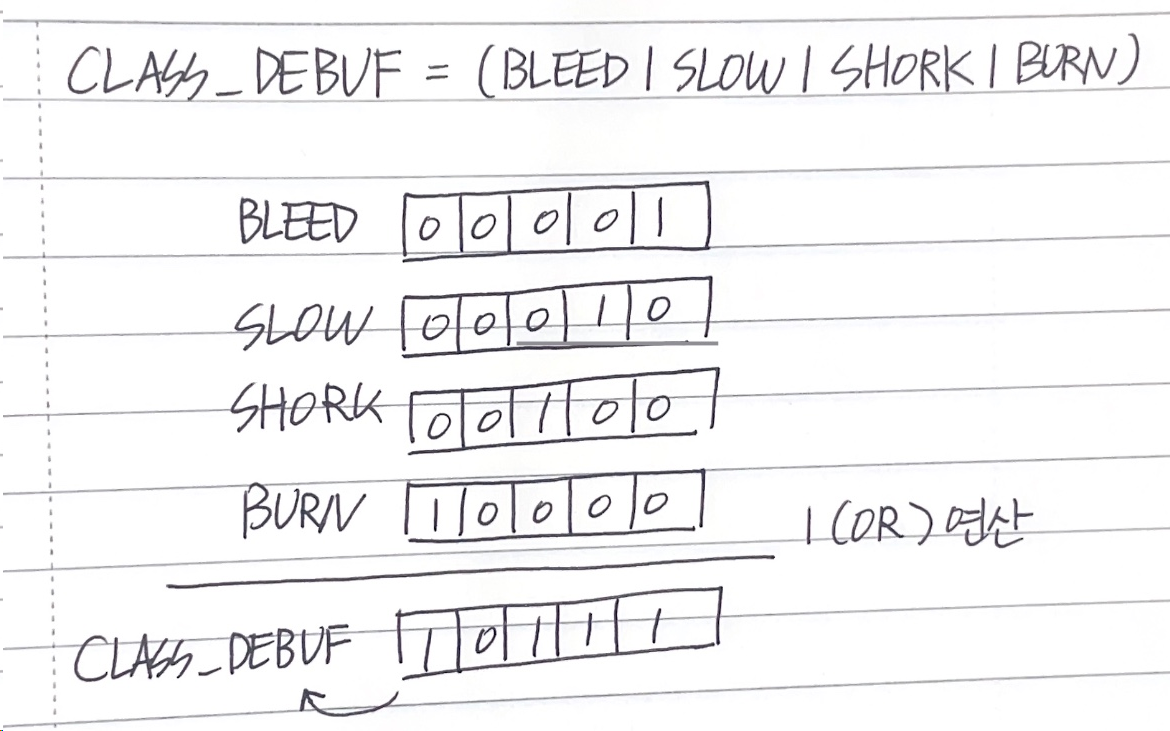 CLASS_DEBUF = (BLEED | SLOW | SHORK | BURN)
BLEED 0 0 0 0 1
SLOW 0 0 0 1 0
SHORK 0 0 1 0 0
BURN 1 0 0 0 0
| (OR) 연산
CLASS_DEBUF 1 0 1 1 1